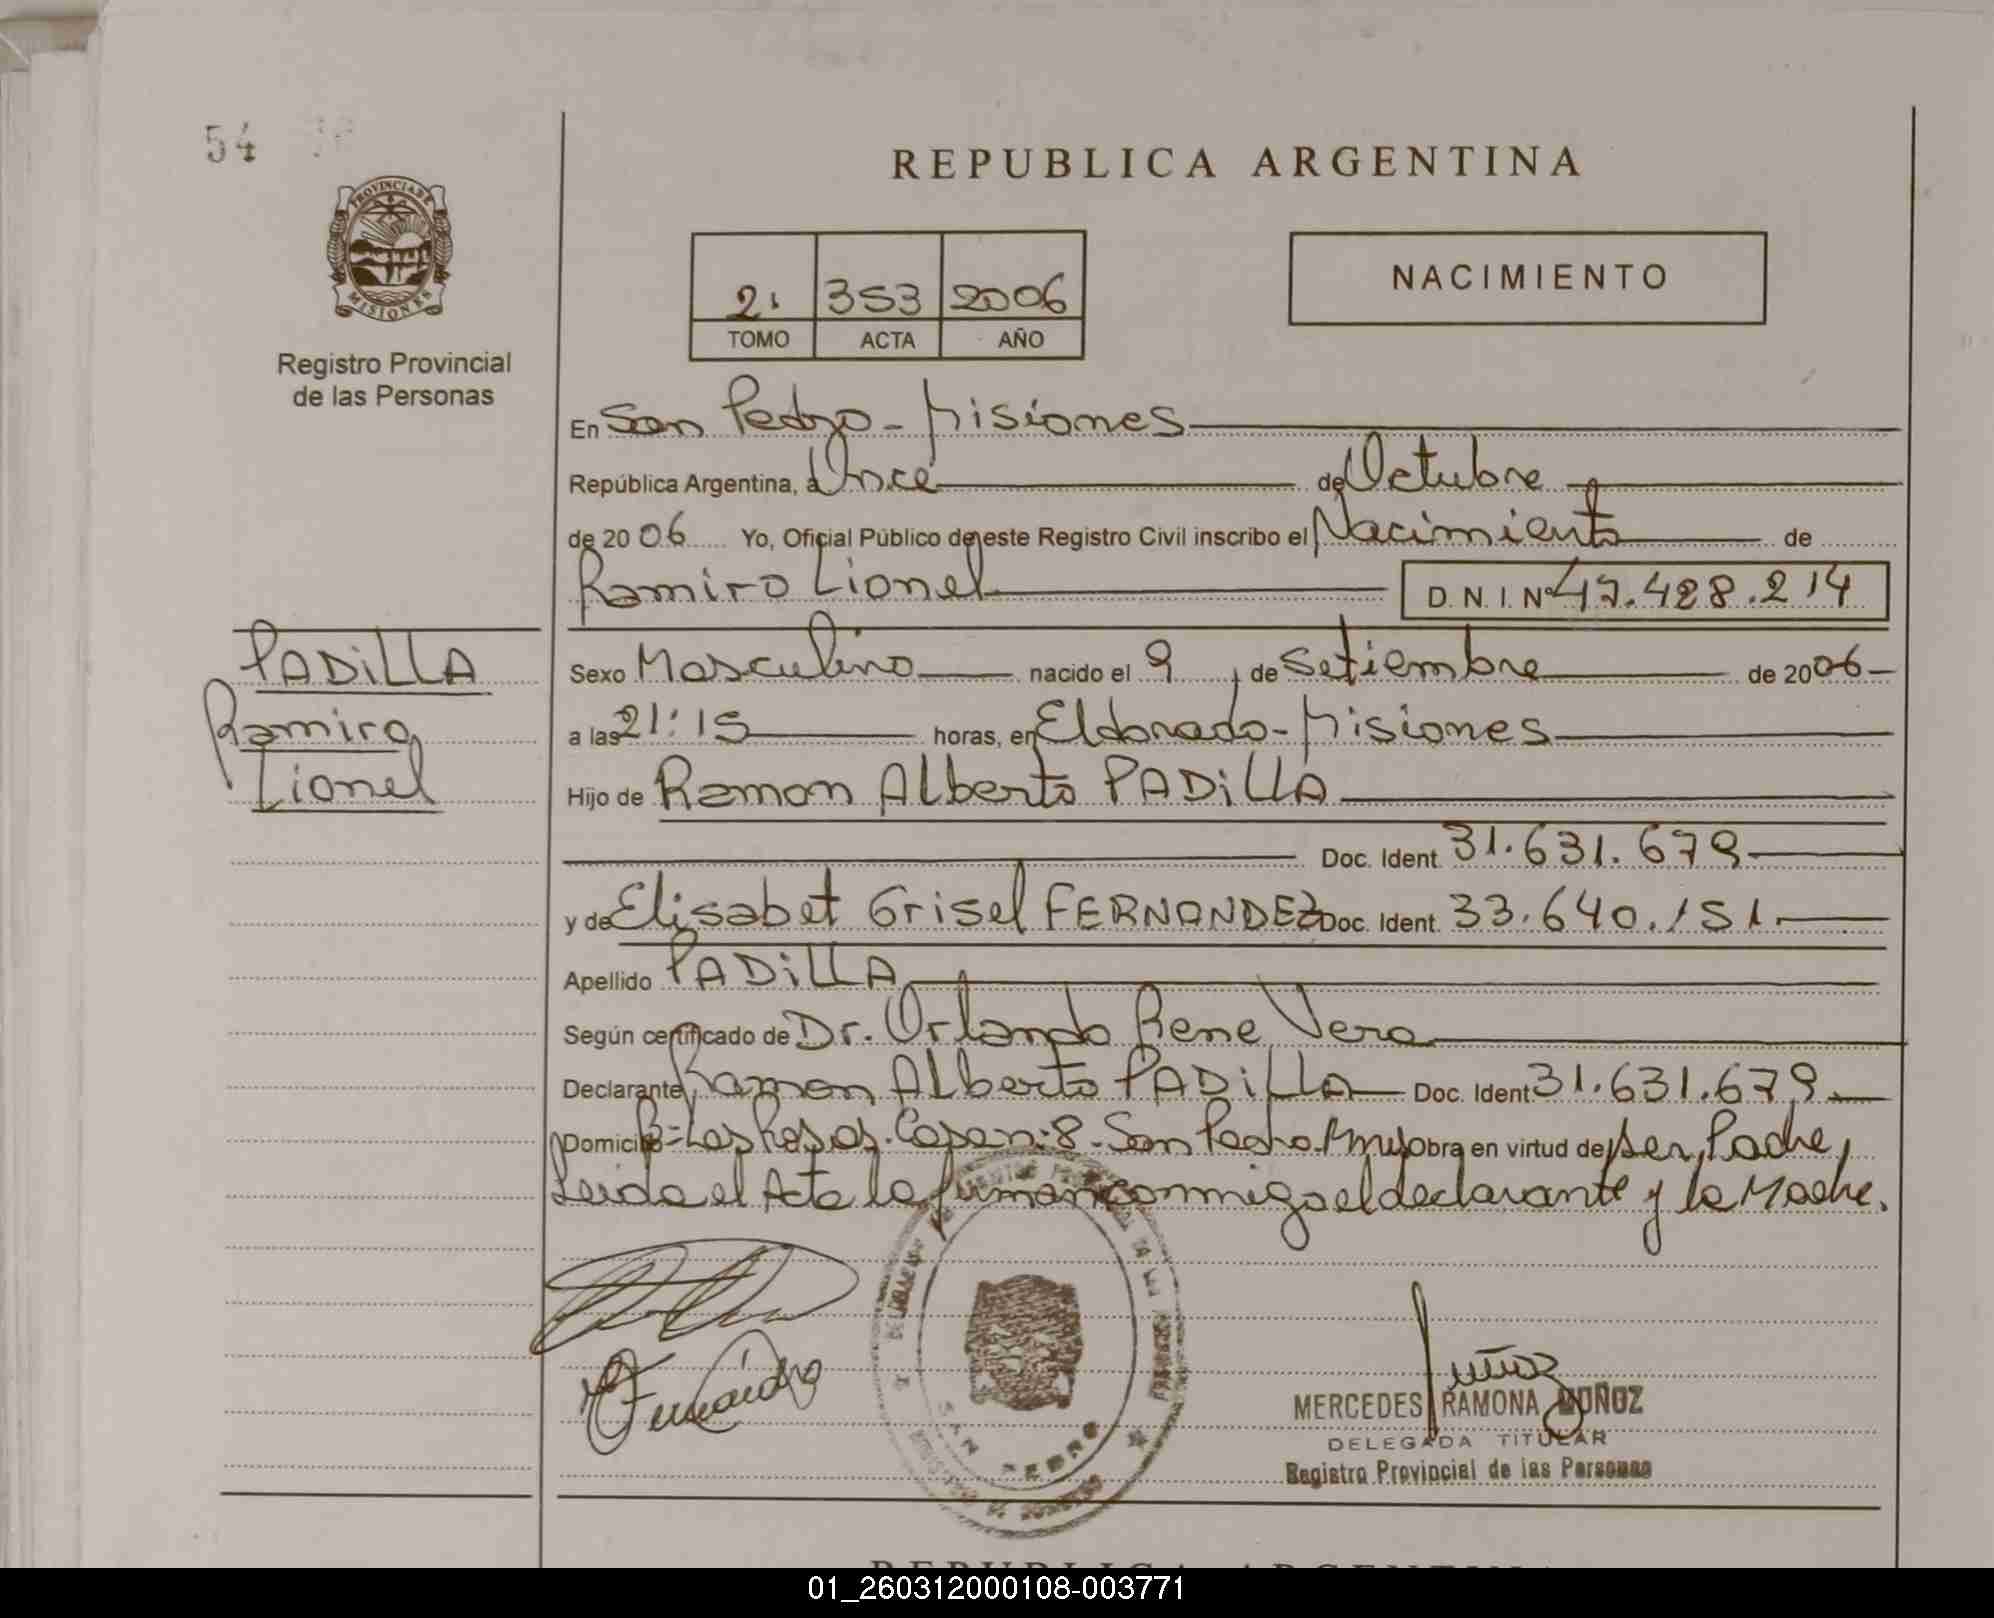 54
REPUBLICA ARGENTINA
PROVINCIA DE
MISIONES
Registro Provincial
de las Personas
2. 353 2006
TOMO ACTA AÑO
NACIMIENTO
En San Pedro - Misiones
República Argentina, a Once de Octubre
de 2006 Yo, Oficial Público de este Registro Civil inscribo el Nacimiento de
Ramiro Lionel D.N.I. Nº 47.428.214
PADiLLA
Ramiro
Lionel
Sexo Masculino nacido el 9 de Setiembre de 2006
a las 21:15 horas, en Eldorado - Misiones
Hijo de Ramon Alberto PADiLLA
Doc. Ident. 31.631.679
y de Elisabet Grisel FERNANDEZ Doc. Ident. 33.640.151
Apellido PADiLLA
Según certificado de Dr. Orlando Rene Vera
Declarante Ramon Alberto PADiLLA Doc. Ident 31.631.679
Domicilio Bº Las Rosas. Casa n: 8 - San Pedro. Mnes obra en virtud de ser Padre,
Leida el Acta la firman conmigo el declarante y la Madre.
Fernández
SAN PEDRO
Muñoz
MERCEDES RAMONA MUÑOZ
DELEGADA TITULAR
Registro Provincial de las Personas
REPUBLICA ARGENTINA
01_260312000108-003771